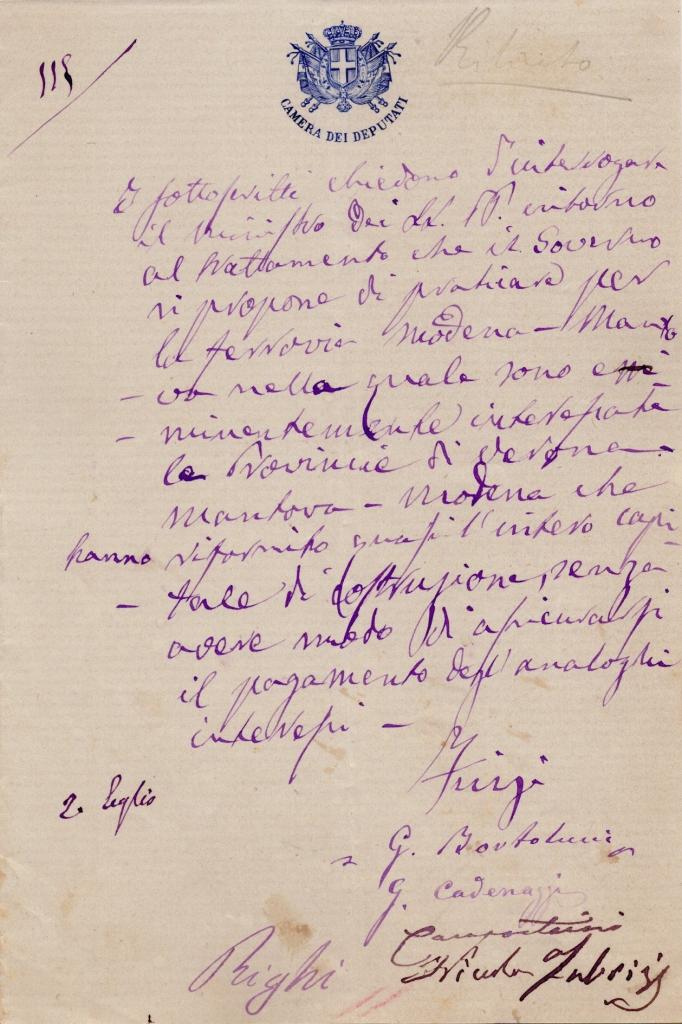 115
Ritirato
CAMERA DEI DEPUTATI
I sottoscritti chiedono d'interrogare
il Ministro dei LL. PP. intorno
al trattamento che il Governo
si propone di praticare per
la ferrovia Modena - Manto
- va nella quale sono emi
- nentemente interessate
le Provincie di Verona -
Mantova - Modena che
hanno rifornito quasi l'intero capi
- tale di costruzione, senza
avere modo di assicurarsi
il pagamento degl'analoghi
interessi -
2. Luglio
G. Bortolucci
G. Cadenazzi
Righi
Nicola Fabrizi